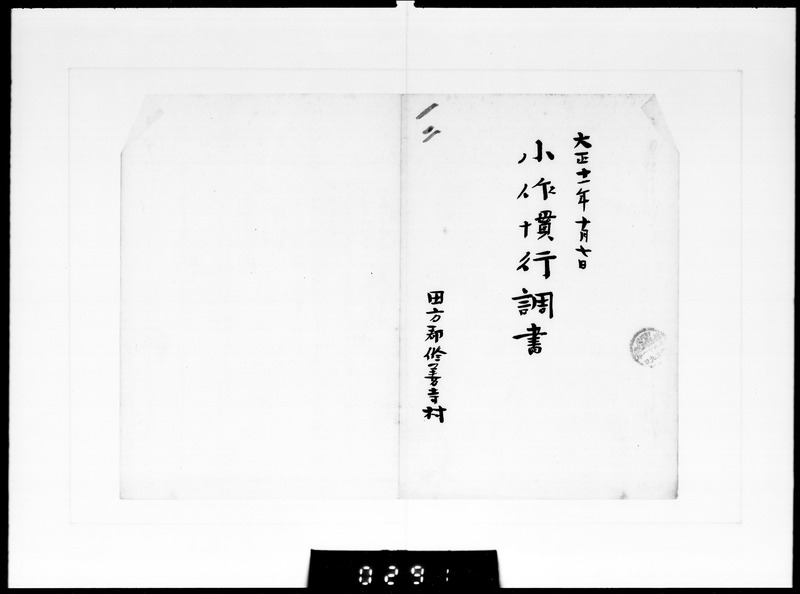 大正十一年十月七日
小作慣行調書
田方郡修善寺村
0291